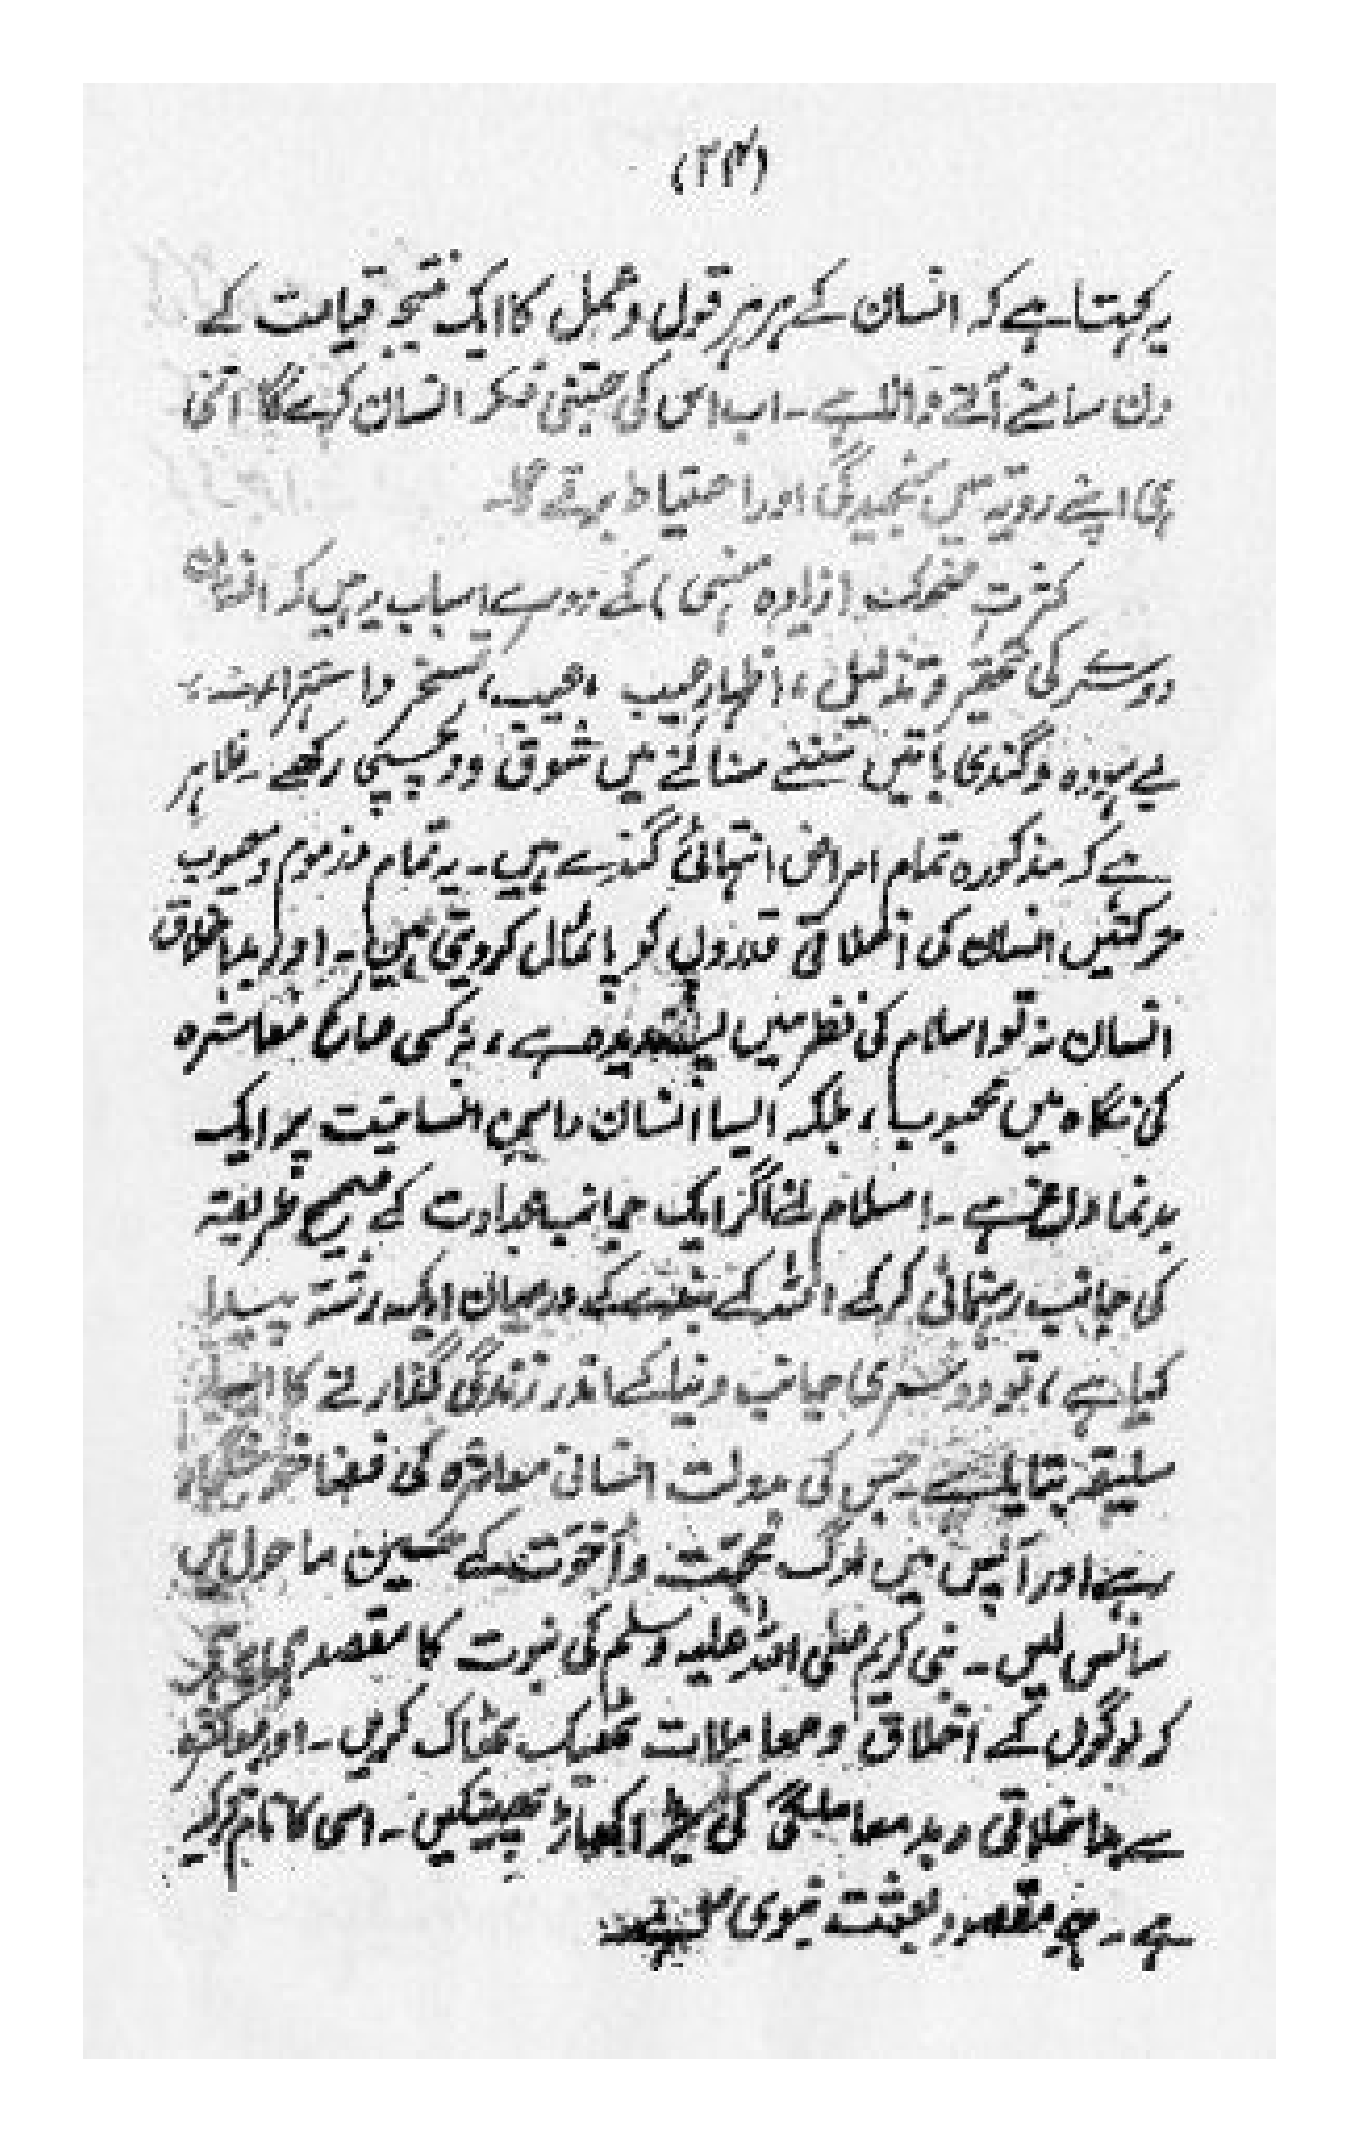 (۲۴)
یہ کہتا ہے کہ انسان کے ہر ہر قول و عمل کا ایک نتیجہ قیامت کے
دن سامنے آنے والا ہے۔ اب اس کی جتنی فکر انسان کرے گا اتنی
ہی اپنے رویہ میں سنجیدگی اور احتیاط برتے گا۔
کثرت ضحک (زیادہ ہنسی) کے دوسرے اسباب یہ ہیں کہ انسان
دوسرے کی تحقیر و تذلیل، اظہار عیب، تمسخر و استہزاء،
بے ہودہ و گندی باتیں سننے سنانے میں شوق و دلچسپی رکھے۔ ظاہر
ہے کہ مذکورہ تمام امراض انتہائی گندے ہیں۔ یہ تمام مذموم و معیوب
حرکتیں انسان کی اخلاقی قدروں کو پامال کر دیتی ہیں۔ اور بداخلاق
انسان نہ تو اسلام کی نظر میں پسندیدہ ہے، نہ کسی صالح معاشرہ
کی نگاہ میں محبوب، بلکہ ایسا انسان دامن انسانیت پر ایک
بدنما داغ ہے۔ اسلام نے اگر ایک جانب عبادت کے صحیح طریقہ
کی جانب رہنمائی کر کے اللہ کے بندے کے درمیان ایک رشتہ پیدا
کیا ہے، تو دوسری جانب دنیا کے اندر زندگی گذارنے کا ایسا
سلیقہ بتایا ہے جس کی بدولت انسانی معاشرہ کی فضا خوشگوار
رہے اور آپس میں لوگ محبت و اخوت کے حسین ماحول میں
سانس لیں۔ نبی کریم صلی اللہ علیہ وسلم کی نبوت کا مقصد ہی
کہ لوگوں کے اخلاق و معاملات ٹھیک ٹھاک کریں۔ اور معاشرہ
سے بداخلاقی و بد معاملگی کی جڑ اکھاڑ پھینکیں۔ اسی کا نام تزکیہ
ہے۔ جو مقصود بعثت نبوی